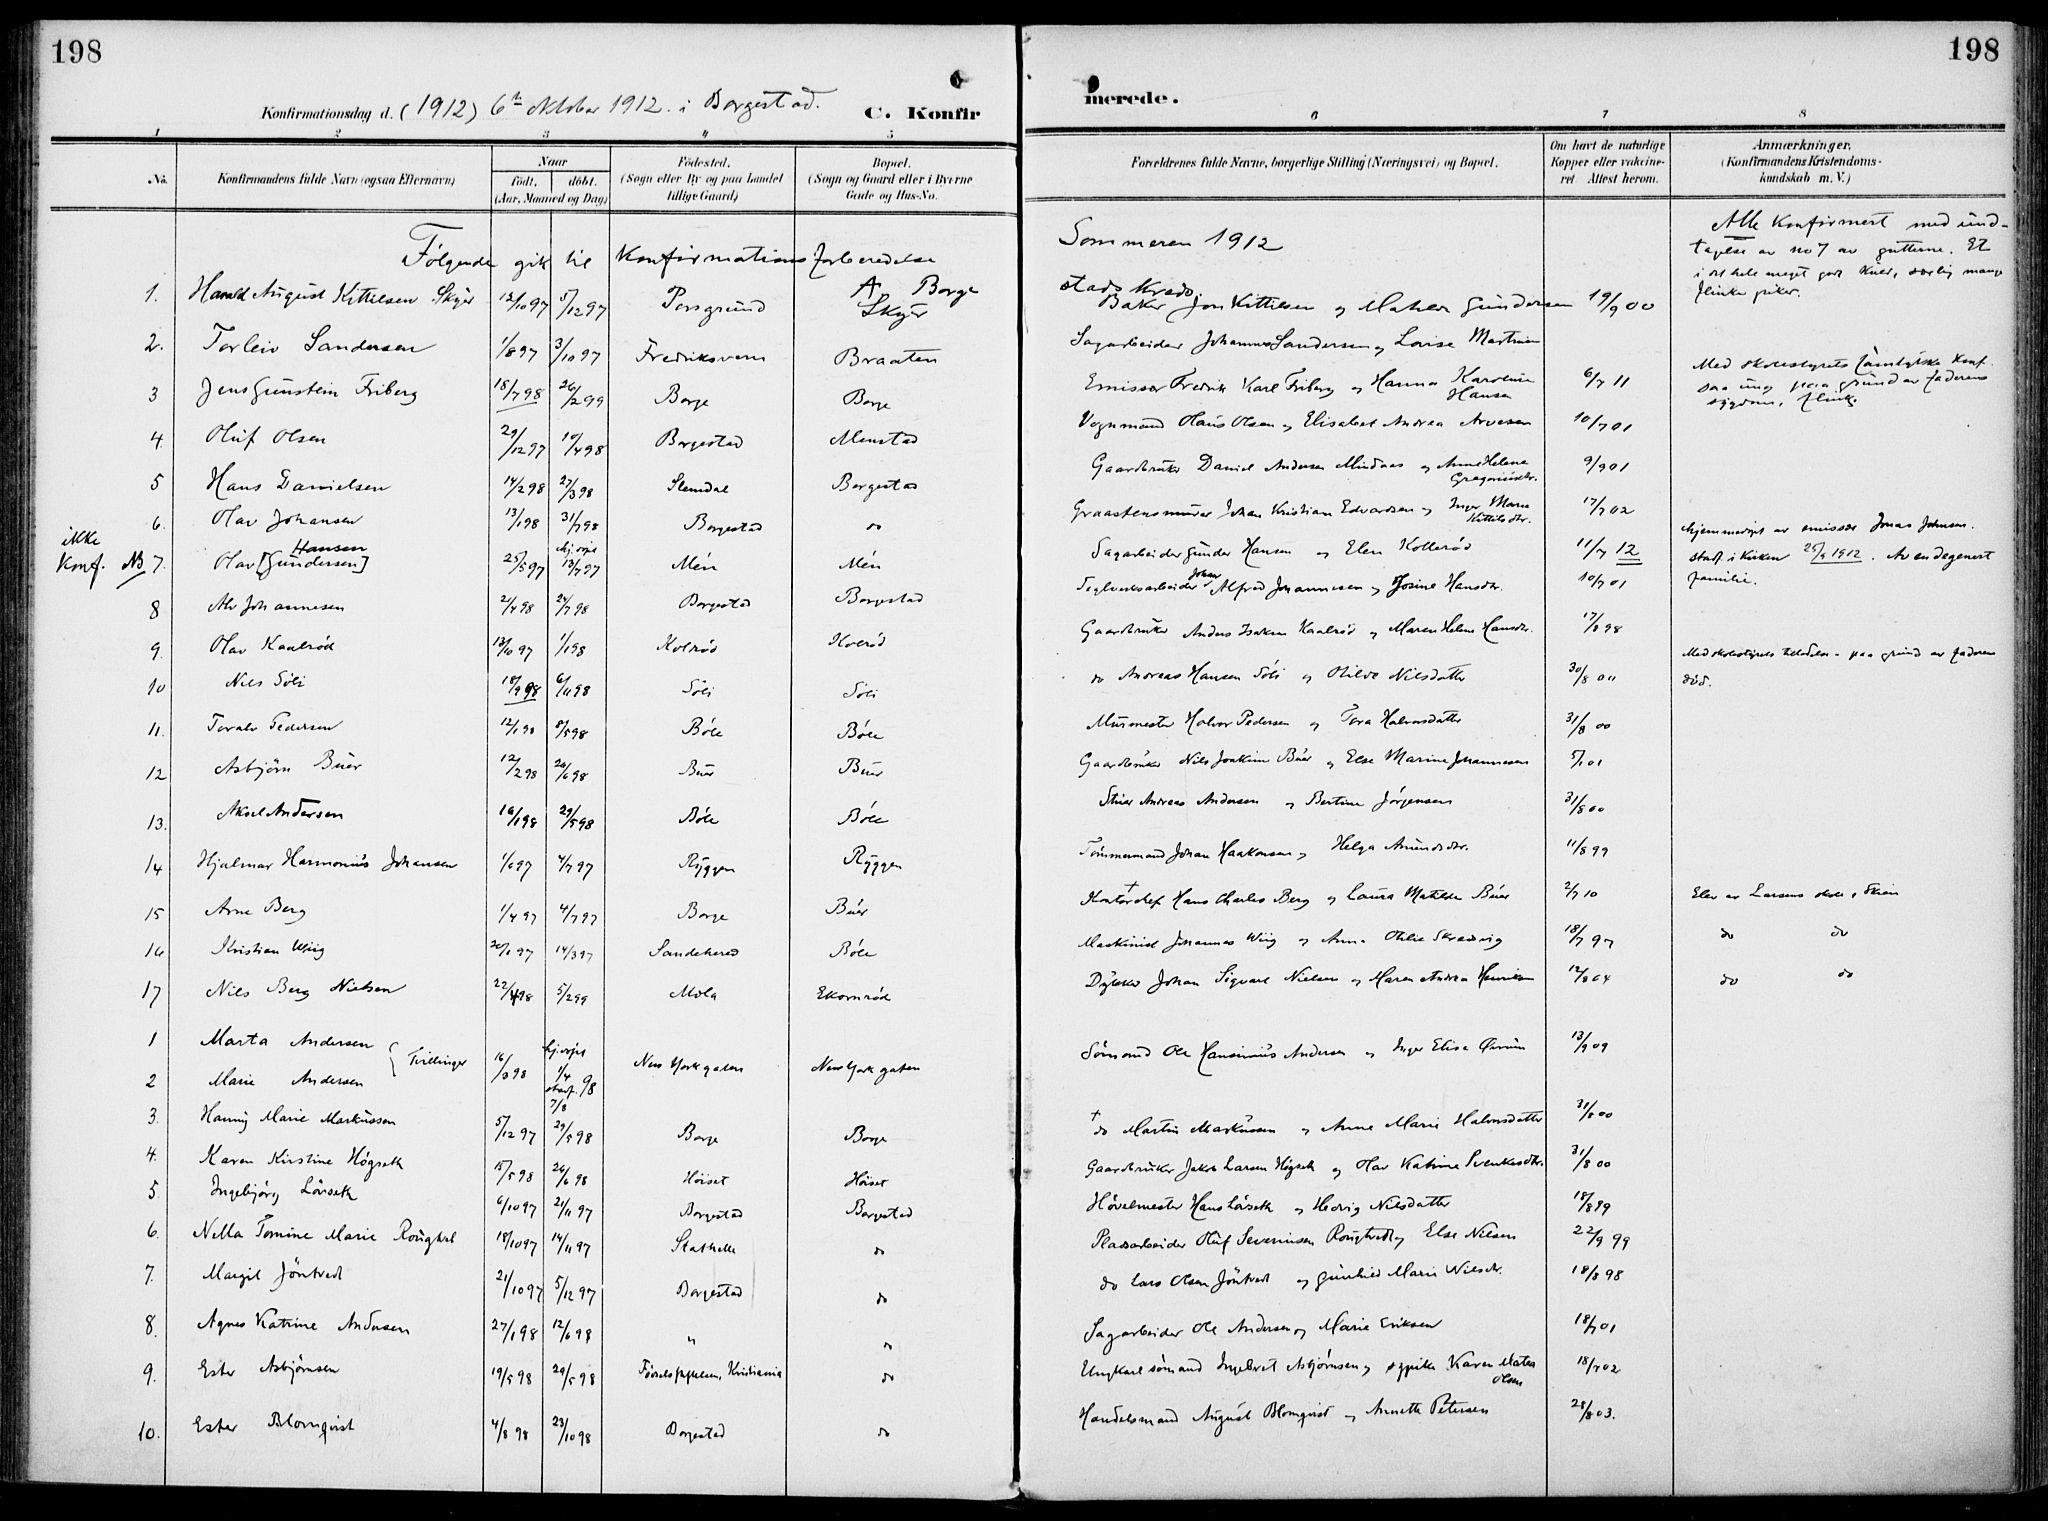 198
198
Konfirmationsdag d. (1912) 6te Oktober 1912. i Borgestad.
C. Konfir
merede.
1 2 3 4 5 6 7 8
No. Konfirmandens fulde Navn (ogsaa Efternavn) Naar født. døbt. (Aar, Maaned og Dag) Fødested. (Sogn eller By og paa Landet tillige Gaard) Bopæl. (Sogn og Gaard eller i Byerne Gade og Hus-No. Forældrenes fulde Navne, borgerlige Stilling (Næringsvei) og Bopæl. Om havt de naturlige Kopper eller vakcineret. Attest herom. Anmærkninger, (Konfirmandens Kristendomskundskab m. V.)
Følgende gik til Konfirmationsforberedelse Sommeren 1912
Alle Konfirmert med und-
tagelse av no 7 av gutterne. Et
i det hele meget godt kuld, særlig mange
flinke piker.
1. Harald August Kittilsen Skyer 12/10 97 5/12 97 Porsgrund Skyer Baker Jon Kittilsen og Mathea Gundersen 19/9 00
2. Torleiv Sandersen 1/8 97 3/10 97 Fredriksvern Braaten Sagarbeider Johannes Sandersen og Lovise Martinsen
3 Jens Gunstein Friberg 18/7 98 26/2 99 Borge Borge Emissær Fredrik Karl Friberg og Hanna Karoline Hansen 6/7 11
Med skolestyrets samtykke konf.
saa ung paa grund av faderens
sygdom, flink.
4. Oluf Olsen 29/12 97 10/4 98 Borgestad Menstad Vognmand Hans Olsen og Elisabet Andrea Arvesen 10/7 01
5 Hans Danielsen 14/2 98 27/3 98 Slemdal Borgestad Gaardbruker Daniel Andersen og Anne Helene Gregoriusdtr. 9/9 01
6. Olav Johansen 13/1 98 31/7 98 Borgestad do Graastensmurer Johan Kristian Edvardsen og Inger Marie Kittilsdtr. 17/7 02
ikke
Konf. NB 7. Olav [Gundersen] Hansen 25/5 97 hj. døpt 13/7 97 Mén Mén Sagarbeider Gunder Hansen og Elen Kollerød 11/7 12
hjemmedøpt av emissær Jonas Johnsen.
stadf. i kirken 25/9 1912. Av en degenert
familie.
8 Alv Johannesen 2/4 98 24/7 98 Borgestad Borgestad Teglverksarbeider Johan Alfred Johannesen og Josine Hansdtr. 10/7 01
9. Olav Kaalrød 13/10 97 1/1 98 Kolrød Kolrød Gaardbruker Anders Isaksen Kaalrød og Maren Helene Hansdtr. 17/8 98
10 Nils Sóli 18/9 98 6/11 98 Sóli Sóli do Andreas Hansen Sóli og Otilde Nilsdatter 30/8 00
Med skolestyrets tilladelse - paa grund av faderens
død.
11. Toralv Pedersen 12/1 98 8/5 98 Bóle Bóle Murmester Halvor Pedersen og Tora Halvorsdatter 31/8 00
12 Asbjørn Buer 12/2 98 26/6 98 Buer Buer Gaardbruker Nils Joakim Buer og Else Marine Johannesen 5/7 01
13. Aksel Andersen 16/1 98 29/5 98 Bóle Bóle Stuer Andreas Andersen og Bertine Jørgensen 31/8 00
14 Hjalmar Harmonius Johansen 1/6 97 4/7 97 Ryggen Ryggen Tømmermand Johan Haakonsen og Helga Amundsdtr. 11/8 99
15 Arne Berg 1/4 97 4/7 97 Borge Buer Kontorchef † Hans Charles Berg og Laura Matilde Buer 2/7 10 Elev av Larsens skole, Skien
16 Kristian Wiig 20/1 97 14/3 97 Sandeherad Bóle Maskinist Johannes Wiig og Anna Otilie Skradvig 18/7 97 do do
17 Nils Berg Nielsen 22/4 98 5/2 99 Mola Ekornrød Dykker Johan Sigvart Nielsen og Maren Andrea Henriksen 12/8 04 do do
1 Marta Andersen
2 Marie Andersen } Tvillinger 16/3 98 hj. døpt 1/4 stadf. 7/8 98 New York gaten New York gaten Sømand Ole Hansinius Andersen og Inger Elise 13/9 09
3. Hanny Marie Markussen 5/12 97 29/5 98 Borge Borge † do Martin Markussen og Anne Marie Halvorsdatter 31/8 00
4. Karen Kirstine Høgseth 15/5 98 26/6 98 Høiset Høiset Gaardbruker Jakob Larsen Høgseth og Olav Katrine Svenkesdtr. 31/8 00
5. Ingebjørg Lørseth 6/10 97 21/11 97 Borgestad Borgestad Høvelmester Hans Lørseth og Hedvig Nilsdatter 18/8 99
6. Nella Tomine Marie Rougtvet 18/10 97 14/11 97 Stathelle do Pladsarbeider Oluf Severinsen Rougtvedt og Else Nilsen 22/9 99
7. Margit Jøntvedt 21/10 97 5/12 97 Borgestad do do Lars Olsen Jøntvedt og Gunhild Marie Nilsdtr. 18/8 98
8. Agnes Katrine Andersen 27/1 98 12/6 98 " do Sagarbeider Ole Andersen og Marie Eriksen 18/7 01
9. Ester Asbjørnsen 19/5 98 29/5 98 Fødselsstiftelsen, Kristiania do Ungkarl sømand Ingebret Asbjørnsen og pike Karen Mathea Olsen 18/7 02
10. Ester Blomqvist 4/8 98 23/10 98 Borgestad do Handelsmand August Blomqvist og Annette Petersen 28/8 03.